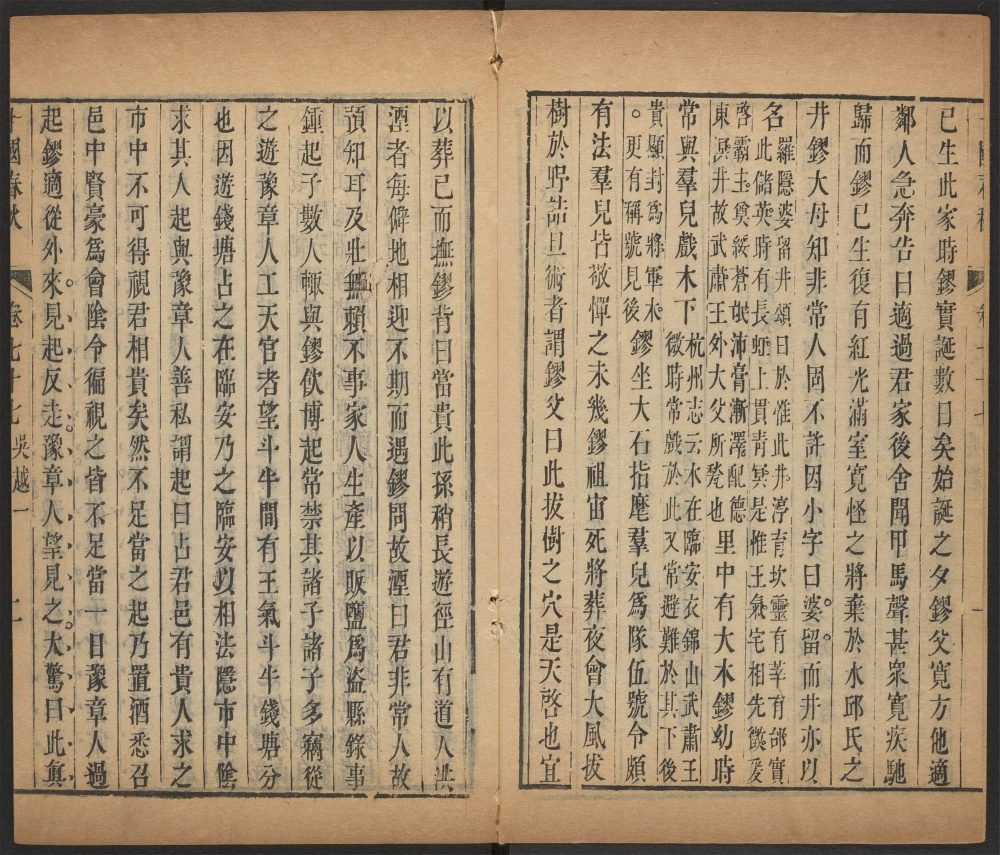 已生此家時鏐實誕數日矣始誕之夕鏐父寬方他適
鄰人急奔告曰適過君家後舍聞甲馬聲甚衆寬疾馳
歸而鏐已生復有紅光滿室寬怪之將棄於水邱氏之
井鏐大母知非常人固不許因小字曰婆留而井亦以
名羅隱婆留井頌曰於惟此井渟育坎靈有莘有邰實
此儲英時有長虹上貫青冥是惟王氣宅相先徵爰
啓霸圭奠綏蒼氓沛膏漸澤配德
東溟井故武肅王外大父所甃也里中有大木鏐幼時
常與羣兒戲木下杭州志云木在臨安衣錦山武肅王
微時常戲於此又常避難於其下後
貴顯封爲將軍木
。更有稱號見後鏐坐大石指麾羣兒爲隊伍號令頗
有法羣兒皆敬憚之未幾鏐祖宙死將葬夜會大風拔
樹於呼詰旦術者謂鏐父曰此拔樹之穴是天啓也宜
以葬已而撫鏐背曰當貴此孫稍長遊徑山有道人洪
湮者每僻地相迎不期而遇鏐問故湮曰君非常人故
預知耳及壯無賴不事家人生產以販鹽爲盜縣錄事
鍾起子數人輒與鏐飲博起常禁其諸子諸子多竊從
之遊豫章人工天官者望斗牛間有王氣斗牛錢塘分
也因遊錢塘占之在臨安乃之臨安以相法隱市中陰
求其人起與豫章人善私謂起曰占君邑有貴人求之
市中不可得視君相貴矣然不足當之起乃置酒悉召
邑中賢豪爲會陰令徧視之皆不足當一日豫章人過
起鏐適從外來見起反走豫章人望見之大驚曰此眞
十國春秋 卷七十七 吳越一 二